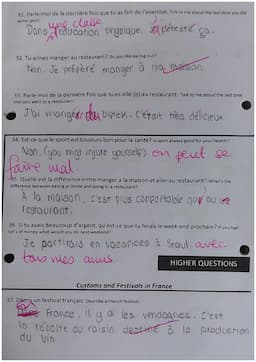 31. Parle-moi de la dernière fois que tu as fait de l'exercice. Talk to me about the last time you did some sport.
une classe
Dans l'éducation physique, j'ai détesté ça.
32. Tu aimes manger au restaurant? Do you like eating out?
Non. Je préfère manger à ma maison.
33. Parle-moi de la dernière fois que tu es allé (e) au restaurant. Talk to me about the last time that you went to a restaurant.
J'ai mangé du börek. C'était très délicieux
34. Est-ce que le sport est toujours bon pour la santé? Is sport always good for your health?
Non, (you may injure yourself) on peut se
faire mal.
35. Quelle est la différence entre manger à la maison et aller au restaurant? What's the difference between eating at home and going to a restaurant?
À la maison, c'est plus confortable qu'au
restaurant.
36. Si tu avais beaucoup d'argent, qu'est ce que tu ferais le week-end prochain? If you had lots of money what would you do next weekend?
Je partirais en vacances à Seoul avec
tous mes amis.
HIGHER QUESTIONS
Customs and Festivals in France
37. Décris un festival français. Describe a French festival.
France, il y a les vendanges. C'est
la récolte du raisin destiné à la production
du vin